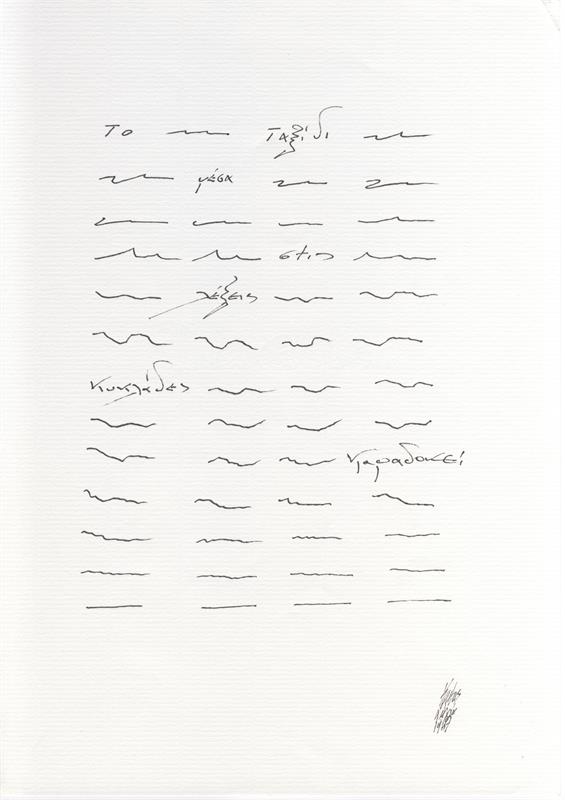 Το ταξίδι
μέσα
στις
λέξεις
Κυκλάδες
καραδοκεί